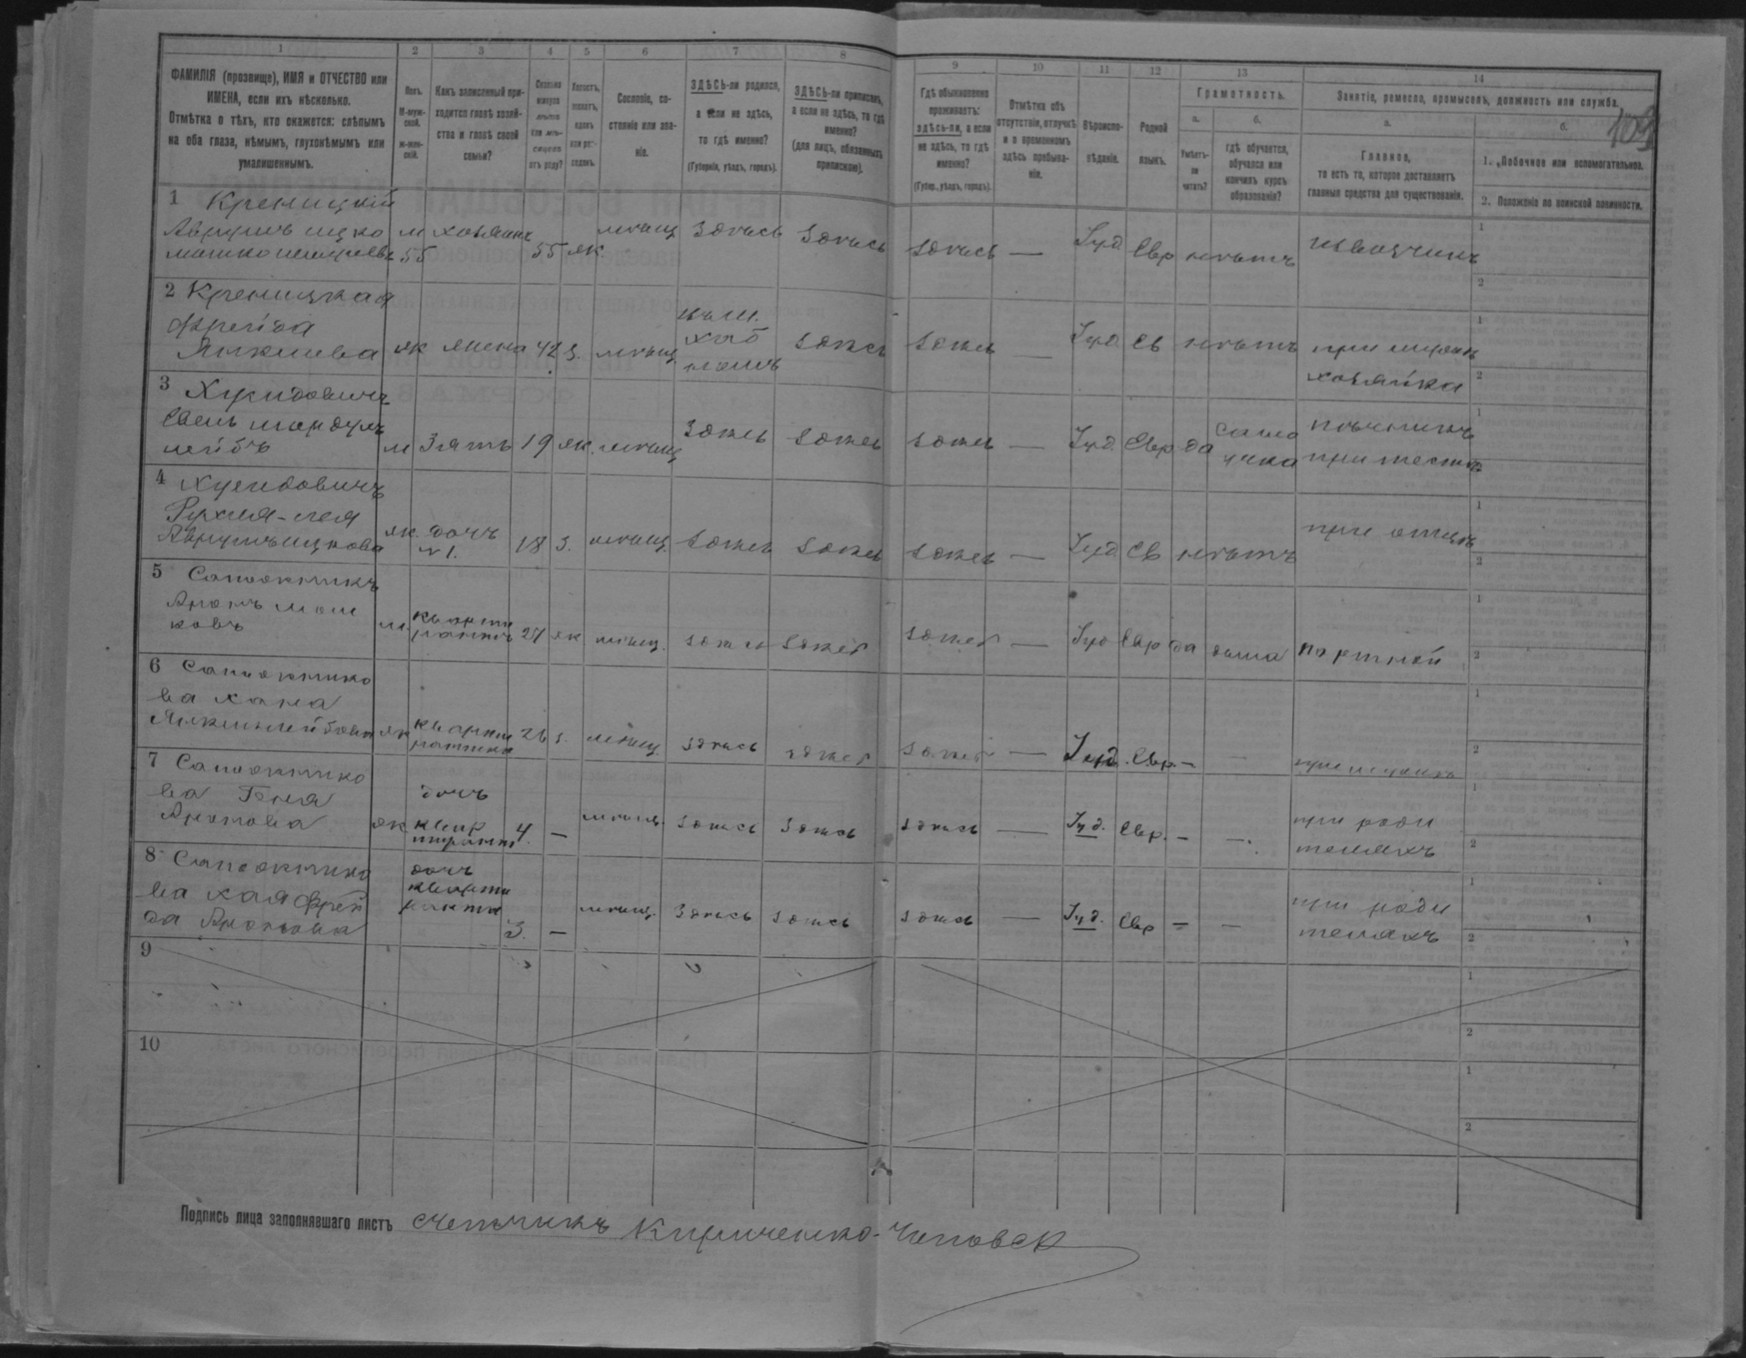 1 2 3 4 5 6 7 8 9 10 11 12 13 14
109
ФАМИЛІЯ (прозвище), ИМЯ и ОТЧЕСТВО или
ИМЕНА, если ихъ нѣсколько.
Отмѣтка о тѣхъ, кто окажется: слѣпымъ
на оба глаза, нѣмымъ, глухонѣмымъ или
умалишеннымъ.
Полъ.
М-муж-
ской.
ж-жен-
скій.
Какъ записанный при-
ходится главѣ хозяй-
ства и главѣ своей
семьи?
Сколько
минуло
лѣтъ
или мѣ-
сяцевъ
отъ роду?
Холостъ,
женатъ,
вдовъ
или раз-
веденъ.
Сословіе, со-
стояніе или зва-
ніе.
ЗДѢСЬ-ли родился,
а если не здѣсь,
то гдѣ именно?
(Губернія, уѣздъ, городъ).
ЗДѢСЬ-ли приписанъ,
а если не здѣсь, то гдѣ
именно?
(для лицъ, обязанныхъ
припискою).
Гдѣ обыкновенно
проживаетъ:
здѣсь-ли, а если
не здѣсь, то гдѣ
именно?
(Губер., уѣздъ, городъ).
Отмѣтка объ
отсутствіи, отлучкѣ
и о временномъ
здѣсь пребыва-
ніи.
Вѣроиспо-
вѣданіе.
Родной
языкъ.
Грамотность.
а.
Умѣетъ-
ли
читать?
б.
гдѣ обучается,
обучался или
кончилъ курсъ
образованія?
Занятіе, ремесло, промыселъ, должность или служба.
а.
Главное,
то есть то, которое доставляетъ
главныя средства для существованія.
б.
1. Побочное или вспомогательное.
2. Положеніе по воинской повинности.
1 Креницкій
Аврумъ ицко
м хозяинъ 55 ж мѣщ здѣсь здѣсь здѣсь — Іуд Евр нѣтъ извозчикъ
55
2 Креницкая
Фрейда
Янкиева ж жена 42 з. мѣщ здѣсь здѣсь — Іуд Ев нѣтъ при мужѣ
хозяйка
3
лейбъ м зять 19 ж. мѣщ здѣсь здѣсь здѣсь — Іуд. Евр да
само
учка при тестѣ
4
Рухля-лея
ж. дочь
№1. 18 з. мѣщ. здѣсь здѣсь здѣсь — Іуд Ев нѣтъ при отцѣ
5 Сапожникъ
Аронъ мош
ковъ м. кварти
рантъ 27 ж мѣщ. здѣсь здѣсь здѣсь — Іуд Евр да дома портной
6 Сапожнико
ва хана
ж кварти
рантка 26 з. мѣщ здѣсь здѣсь здѣсь — Іуд. Евр. — — при мужѣ
7 Сапожнико
ва Геня
Аронова ж
дочь
квар
4. — мѣщ. здѣсь здѣсь здѣсь — Іуд. Евр. — —
при роди
теляхъ
8 Сапожнико
ва хая Фрей
да Аронова
дочь
кварти
ранта 3. — мѣщ. здѣсь здѣсь здѣсь — Іуд. Евр — —
при роди
теляхъ
9
10
Подпись лица заполнявшаго листъ счетчикъ Кириченко-